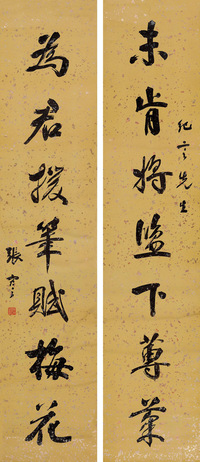 未肯將鹽下蓴菜
紀言先生
為君援筆賦梅花
張